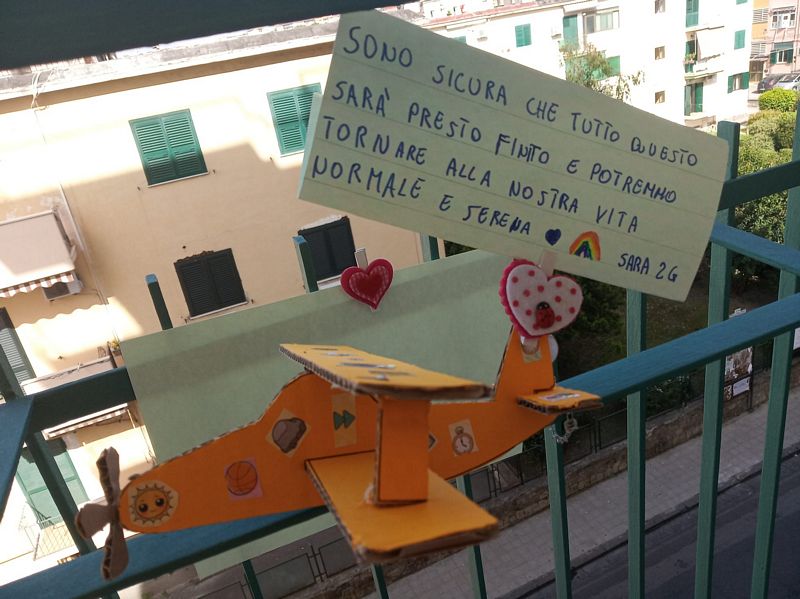 SONO SICURA CHE TUTTO QUESTO
SARÀ PRESTO FINITO E POTREMMO
TORNARE ALLA NOSTRA VITA
NORMALE E SERENA
SARA 2G